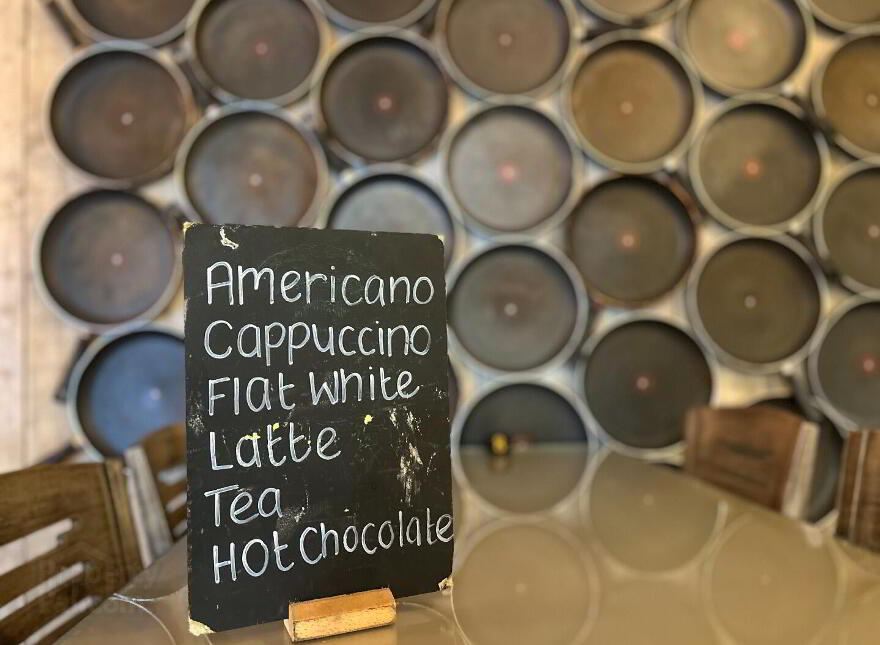 Americano
Cappuccino
Flat White
Latte
Tea
Hot Chocolate